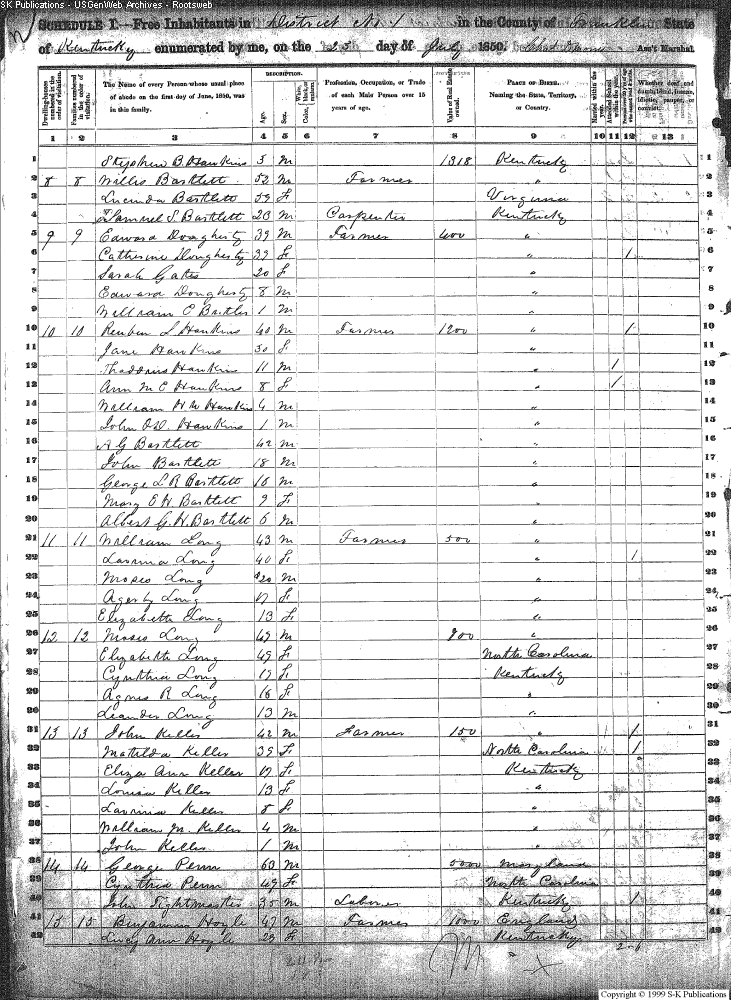 SK Publications - USGenWeb Archives - Rootsweb
SCHEDULE I.—Free Inhabitants in District No. 1 in the County of Franklin State
of Kentucky enumerated by me, on the 25 day of July 1850. Ass't Marshal.
Dwelling-houses numbered in the order of visitation.
Families numbered in the order of visitation.
The Name of every Person whose usual place of abode on the first day of June, 1850, was in this family.
DESCRIPTION.
Age.
Sex.
Color, White, black, or mulatto.
Profession, Occupation, or Trade of each Male Person over 15 years of age.
Value of Real Estate owned.
PLACE OF BIRTH. Naming the State, Territory, or Country.
Married within the year.
Attended School
Whether deaf and dumb, blind, insane, idiotic, pauper, or convict.
1 2 3 4 5 6 7 8 9 10 11 12 13
1 Stephen B. Hawkins 5 M 1318 Kentucky 1
2 8 8 Willis Bartlett 52 M Farmer " 2
3 Lucinda Bartlett 59 F Virginia 3
4 Samuel S Bartlett 23 M Carpenter Kentucky 4
5 9 9 Edward Dougherty 39 M Farmer 400 " 5
6 Catherine Dougherty 39 F " 1 6
7 Sarah Gates 20 F " 7
8 Edward Dougherty 8 M 8
9 William C 1 M " 9
10 10 10 Reuben L Hawkins 40 M Farmer 1200 " 1 10
11 Jane Hawkins 30 F " 11
12 Thaddeus Hawkins 11 M " 1 12
13 Ann M E Hawkins 8 F " 1 13
14 William H M Hawkins 4 M " 14
15 John Hawkins 1 M " 15
16 A G Bartlett 42 M " 16
17 John Bartlett 18 M " 17
18 George L R Bartlett 10 M " 18
19 Mary E H Bartlett 9 F " 19
20 Albert G. H. Bartlett 6 M " 20
21 11 11 William Long 43 M Farmer 500 " 21
22 Lavinia Long 40 F " 1 22
23 Moses Long 20 M " 23
24 Long 17 F " 24
25 Elizabeth Long 13 F " 25
26 12 12 Moses Long 49 M 800 " 26
27 Elizabeth Long 49 F North Carolina 27
28 Cynthia Long 17 F Kentucky 28
29 Agnes R Long 16 F " 29
30 Leander Long 13 M " 30
31 13 13 John Keller 42 M Farmer 150 " 1 31
32 Matilda Keller 39 F North Carolina 1 32
33 Eliza Ann Keller 17 F Kentucky 33
34 Louisa Keller 13 F " 34
35 Lavinia Keller 8 F " 35
36 William M. Keller 4 M " 36
37 John Keller 1 M " 37
38 14 14 George Penn 63 M 5000 Maryland 38
39 Cynthia Penn 49 F North Carolina 39
40 John Tightmaster 35 M Laborer Kentucky 1 40
41 15 15 Benjamin Hoyle 47 M Farmer 1000 England 41
42 Lucy Ann Hoyle 29 F Kentucky 42
Copyright © 1999 S-K Publications